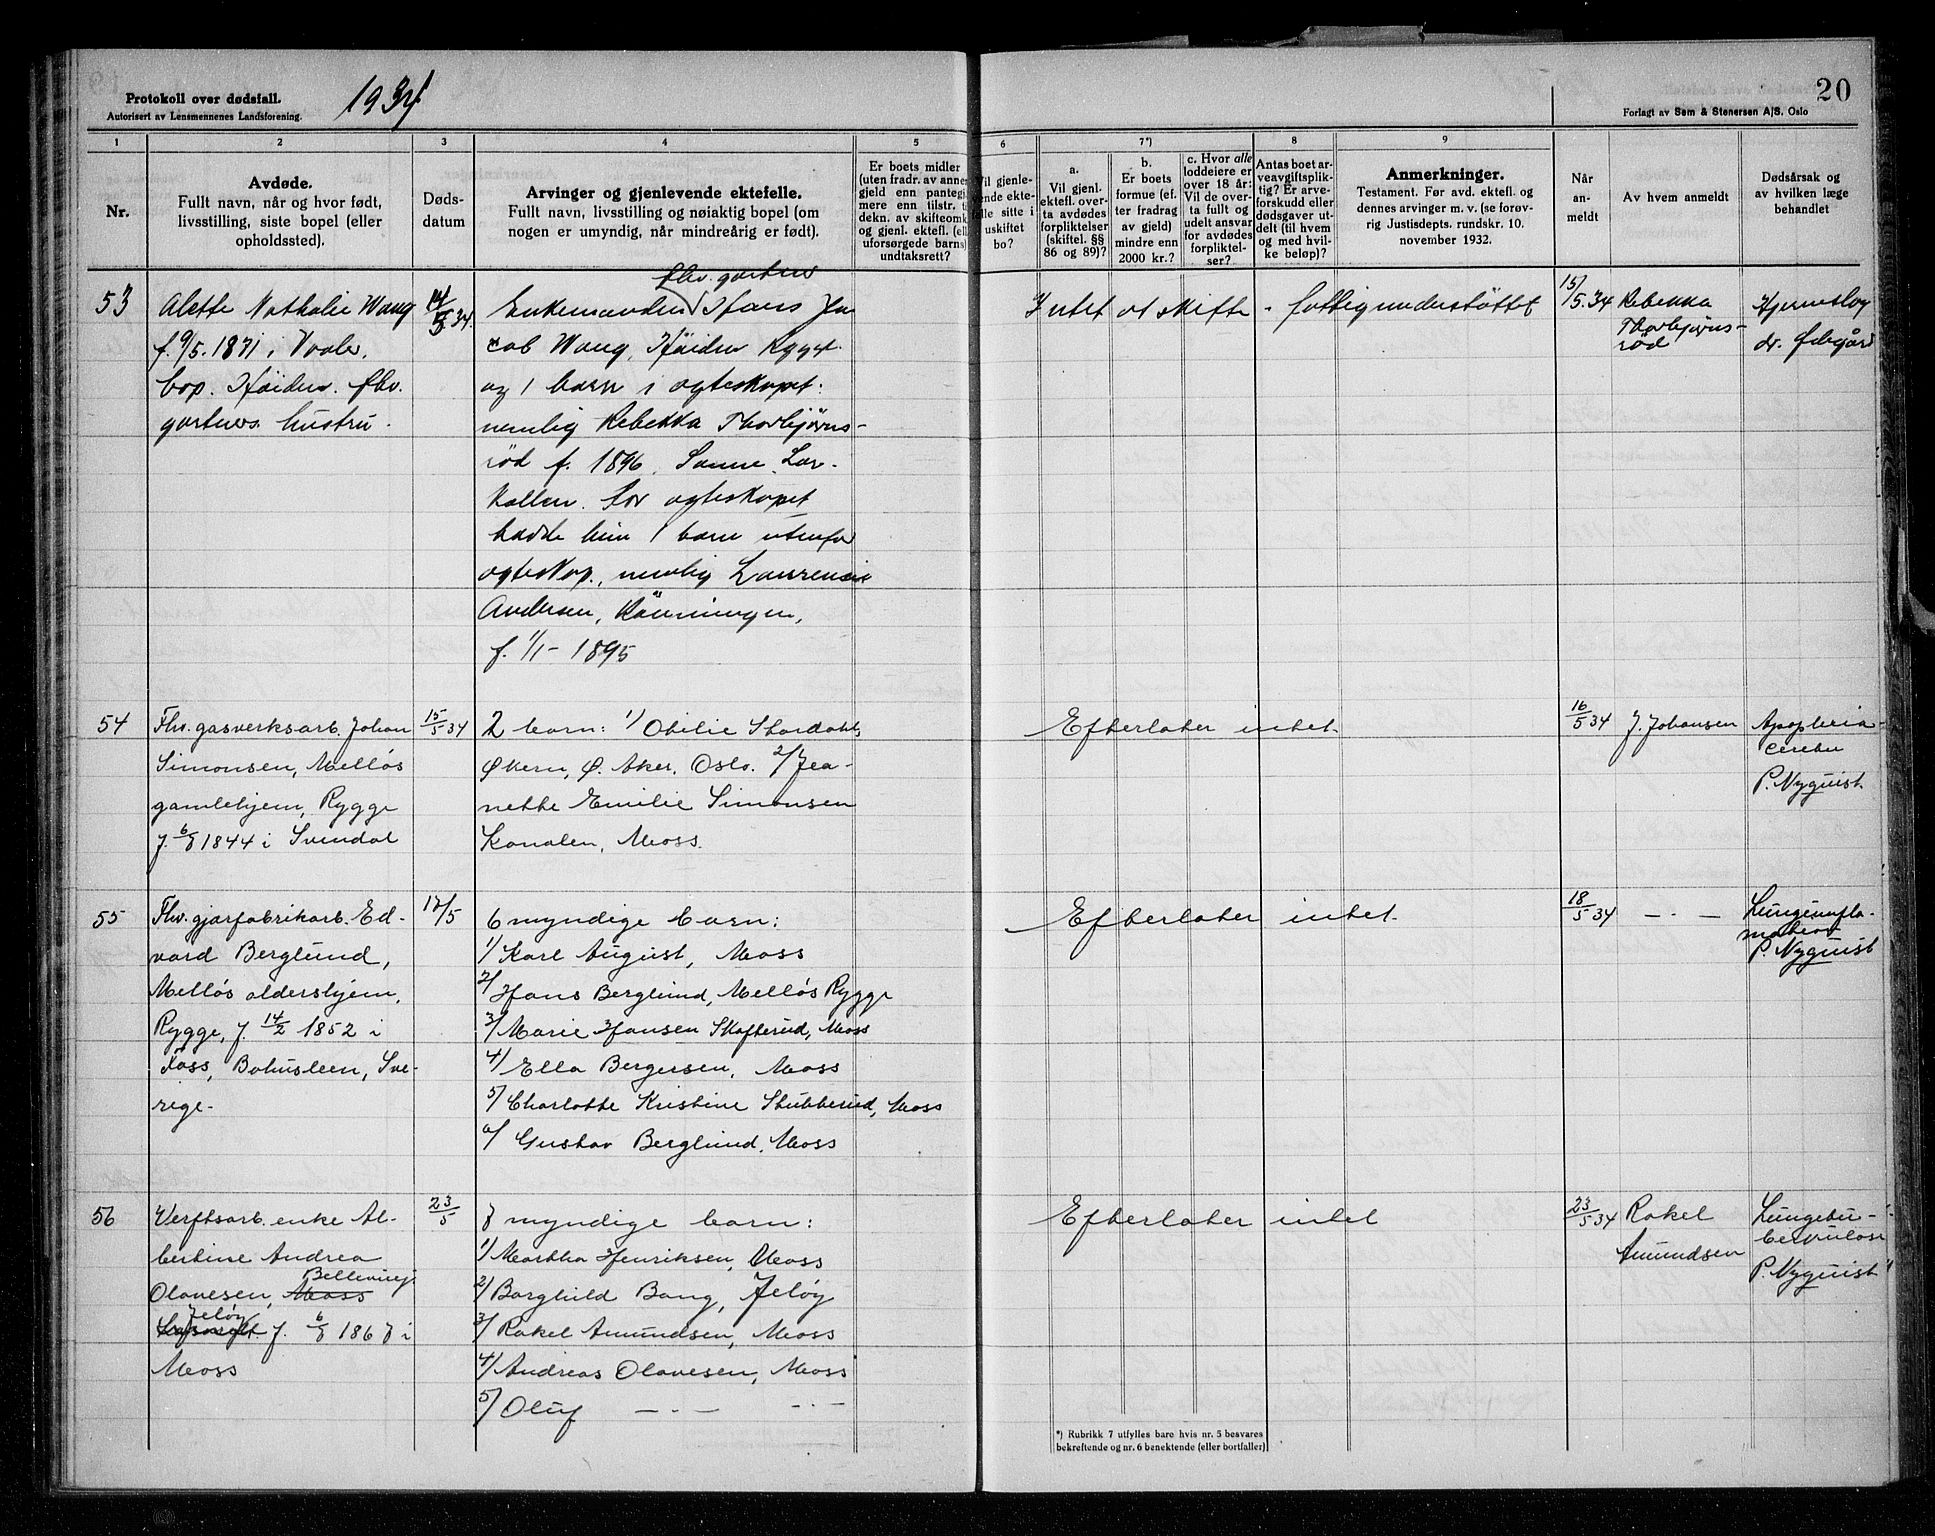 Protokoll over dødsfall.
Autorisert av Lensmennenes Landsforening.
1934
20
Forlagt av Sem & Stenersen A/S. Oslo
1
2
3
4
5
6
7*)
8
9
Nr.
Avdøde.
Fullt navn, når og hvor født,
livsstilling, siste bopel (eller
opholdssted).
Døds-
datum
Arvinger og gjenlevende ektefelle.
Fullt navn, livsstilling og nøiaktig bopel (om
nogen er umyndig, når mindreårig er født).
Er boets midler
(uten fradr. av annen
gjeld enn pantegj
mere enn tilstr. t
dekn. av skifteomk
og gjenl. ektef. (ell
uforsørgede barns)
undtaksrett?
Vil gjenle-
ende ekte-
elle sitte i
uskiftet
bo?
a.
Vil gjenl.
ektef. over-
ta avdødes
forpliktelser
(skiftel. §§
86 og 89)?
b.
Er boets
formue (ef.
ter fradrag
av gjeld)
mindre enn
2000 kr.?
c. Hvor alle
loddeiere er
over 18 år:
Vil de over-
ta fullt og
udelt ansvar
for avdødes
forplikt-
elser?
Antas boet ar-
veavgiftsplik-
tig? Er arve-
forskudd eller
dødsgaver ut-
delt (til hvem
og med hvil-
ke beløp)?
Anmerkninger.
Testament. Før avd. ektefl. og
dennes arvinger m. v. (se forøv-
rig Justisdepts. rundskr. 10.
november 1932.
Når
an-
meldt
Av hvem anmeldt
Dødsårsak og
av hvilken læge
behandlet
53
Alette Nathalie Wang
f. 9/5. 1871 i Vaaler,
bop. Høiden. fhv.
gartners hustru.
14/5 34.
fhv. gartner
Enkemanden Hans Ja-
cob Wang, Høiden Rygge
og 1 barn i egteskapet:
nemlig Rebekka Thorbjørns-
rød f. 1896, Sanne, Lar-
kollen. Før egteskapet
hadde hun 1 barn utenfor
egteskap, nemlig
Andersen, Rønningen,
f. 1/1 - 1895
Intet at skifte - fattigunderstøttet
15/5.34
Rebekka
Thorbjørns-
rød
Hjerneslag
dr. Ødegård
54
Fhv. gasverksarb. Johan
Simonsen, Melløs
gamlehjem, Rygge
f. 6/8 1844 i Svendal
15/5 34
2 barn: 1/ Otilie Stordahl,
Økern, Ø. Aker, Oslo. 2/ Jea-
nette Emilie Simonsen
Kanalen, Moss.
Efterlater intet.
16/5 34
J. Johansen
Apoplexia
cerebri
P. Nyquist
55
Fhv. gjærfabrikarb. Ed-
vard Berglund,
Melløs aldershjem,
Rygge, f. 14/2 1852 i
Foss, Bohusleen, Sve-
rige.
17/5
6 myndige barn:
1/ Karl August, Moss
2/ Hans Berglund, Melløs Rygge
3/ Marie Hansen Skofterud, Moss
4/ Ella Bergersen, Moss
5/ Charlotte Kristine Stubberud, Moss
6/ Gustav Berglund, Moss
Efterlater intet.
18/5 34
— · —
Lungeinfla-
mation
P. Nyquist
56
Verftsarb. enke Al-
bertine Andrea
Bellevuej
Olavesen, Moss
Jeløy
f. 6/8 1868 i
Moss
23/5
8 myndige barn:
1/ Martha Henriksen, Moss
2/ Borghild Bang, Jeløy
3/ Rakel Amundsen, Moss
4/ Andreas Olavesen, Moss
5/ Oluf — · — — · —
Efterlater intet
23/5 34
Rakel
Amundsen
Lungetu-
berkulose
P. Nyquist
*) Rubrikk 7 utfylles bare hvis nr. 5 besvares
bekreftende og nr. 6 benektende (eller bortfaller)